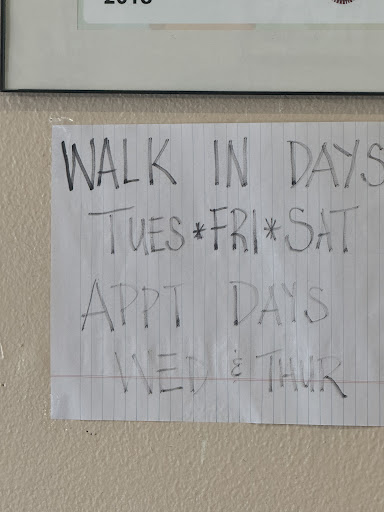 2018
WALK IN DAYS
TUES*FRI*SAT
APPT DAYS
WED & THUR